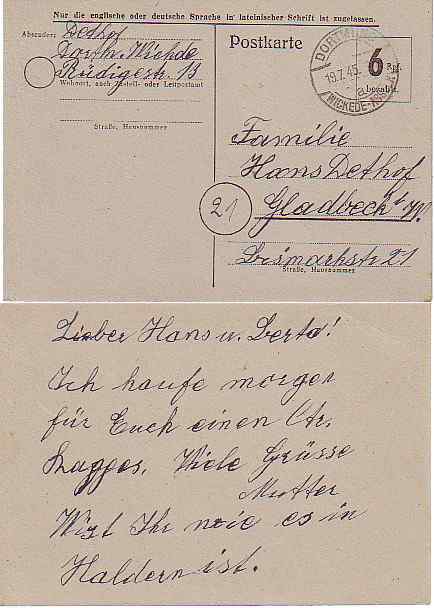 Nur die englische oder deutsche Sprache in lateinischer Schrift ist zugelassen.
Absender: Dethof
Dortm. Wickede
Rüdigerstr. 13
Wohnort, auch Zustell- oder Leitpostamt
Straße, Hausnummer
Postkarte
DORTMUND
19.7.45
WICKEDE-
6 Rpf.
bezahlt.
Familie
Hans Dethof
21
Gladbeck i/W.
Bismarkstr 21
Straße, Hausnummer
Lieber Hans u. Berta!
Ich kaufe morgen
für Euch einen Ctr.
Viele Grüsse
Mutter
Wißt Ihr wie es in
Haldern ist.